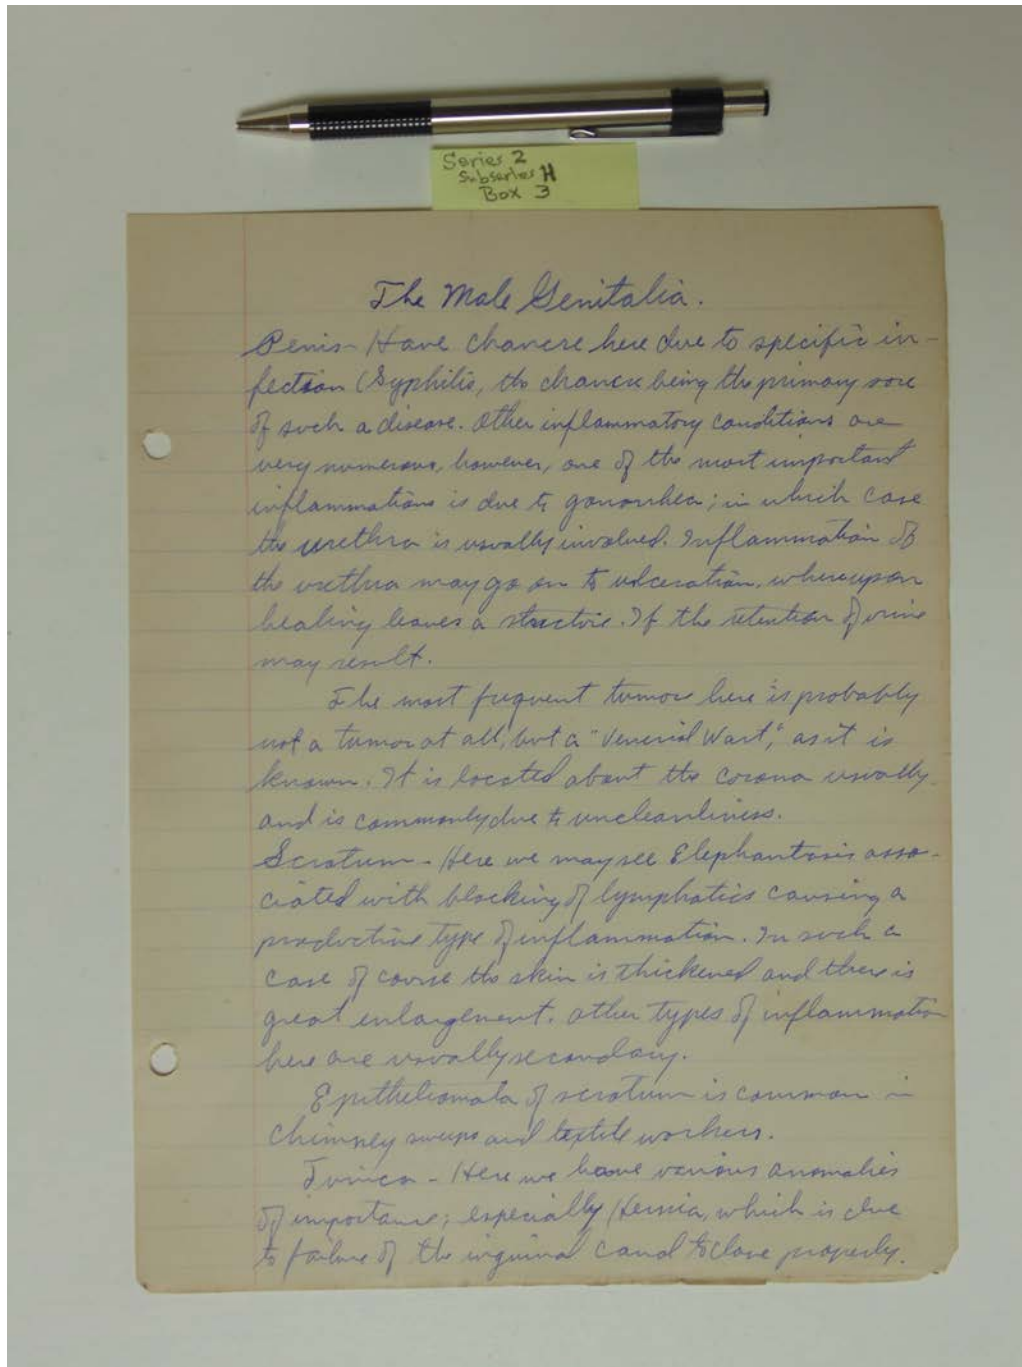 Series 2
Subseries H
Box 3
The Male Genitalia.
Penis - Have chancre here due to specific in-
fection (Syphilis, the chancre being the primary sore
of such a disease. Other inflammatory conditions are
very numerous, however, one of the most important
inflammations is due to gonorrhea; in which case
the urethra is usually involved. Inflammation of
the urethra may go on to ulceration, whereupon
healing leaves a stricture. If the retention of urine
may result.
The most frequent tumor here is probably
not a tumor at all, but a "Venerial Wart," as it is
known. It is located about the corona usually
and is commonly due to uncleanliness.
Scrotum - Here we may see Elephantosis asso-
ciated with blocking of lymphatics causing a
productive type of inflammation. In such a
case of course the skin is thickened and there is
great enlargement. Other types of inflammation
here are usually secondary.
Epitheliomata of scrotum is common in
chimney sweeps and textile workers.
Tunica - Here we have various anomalies
of importance; especially Hernia, which is due
to failure of the inguinal canal to close properly.